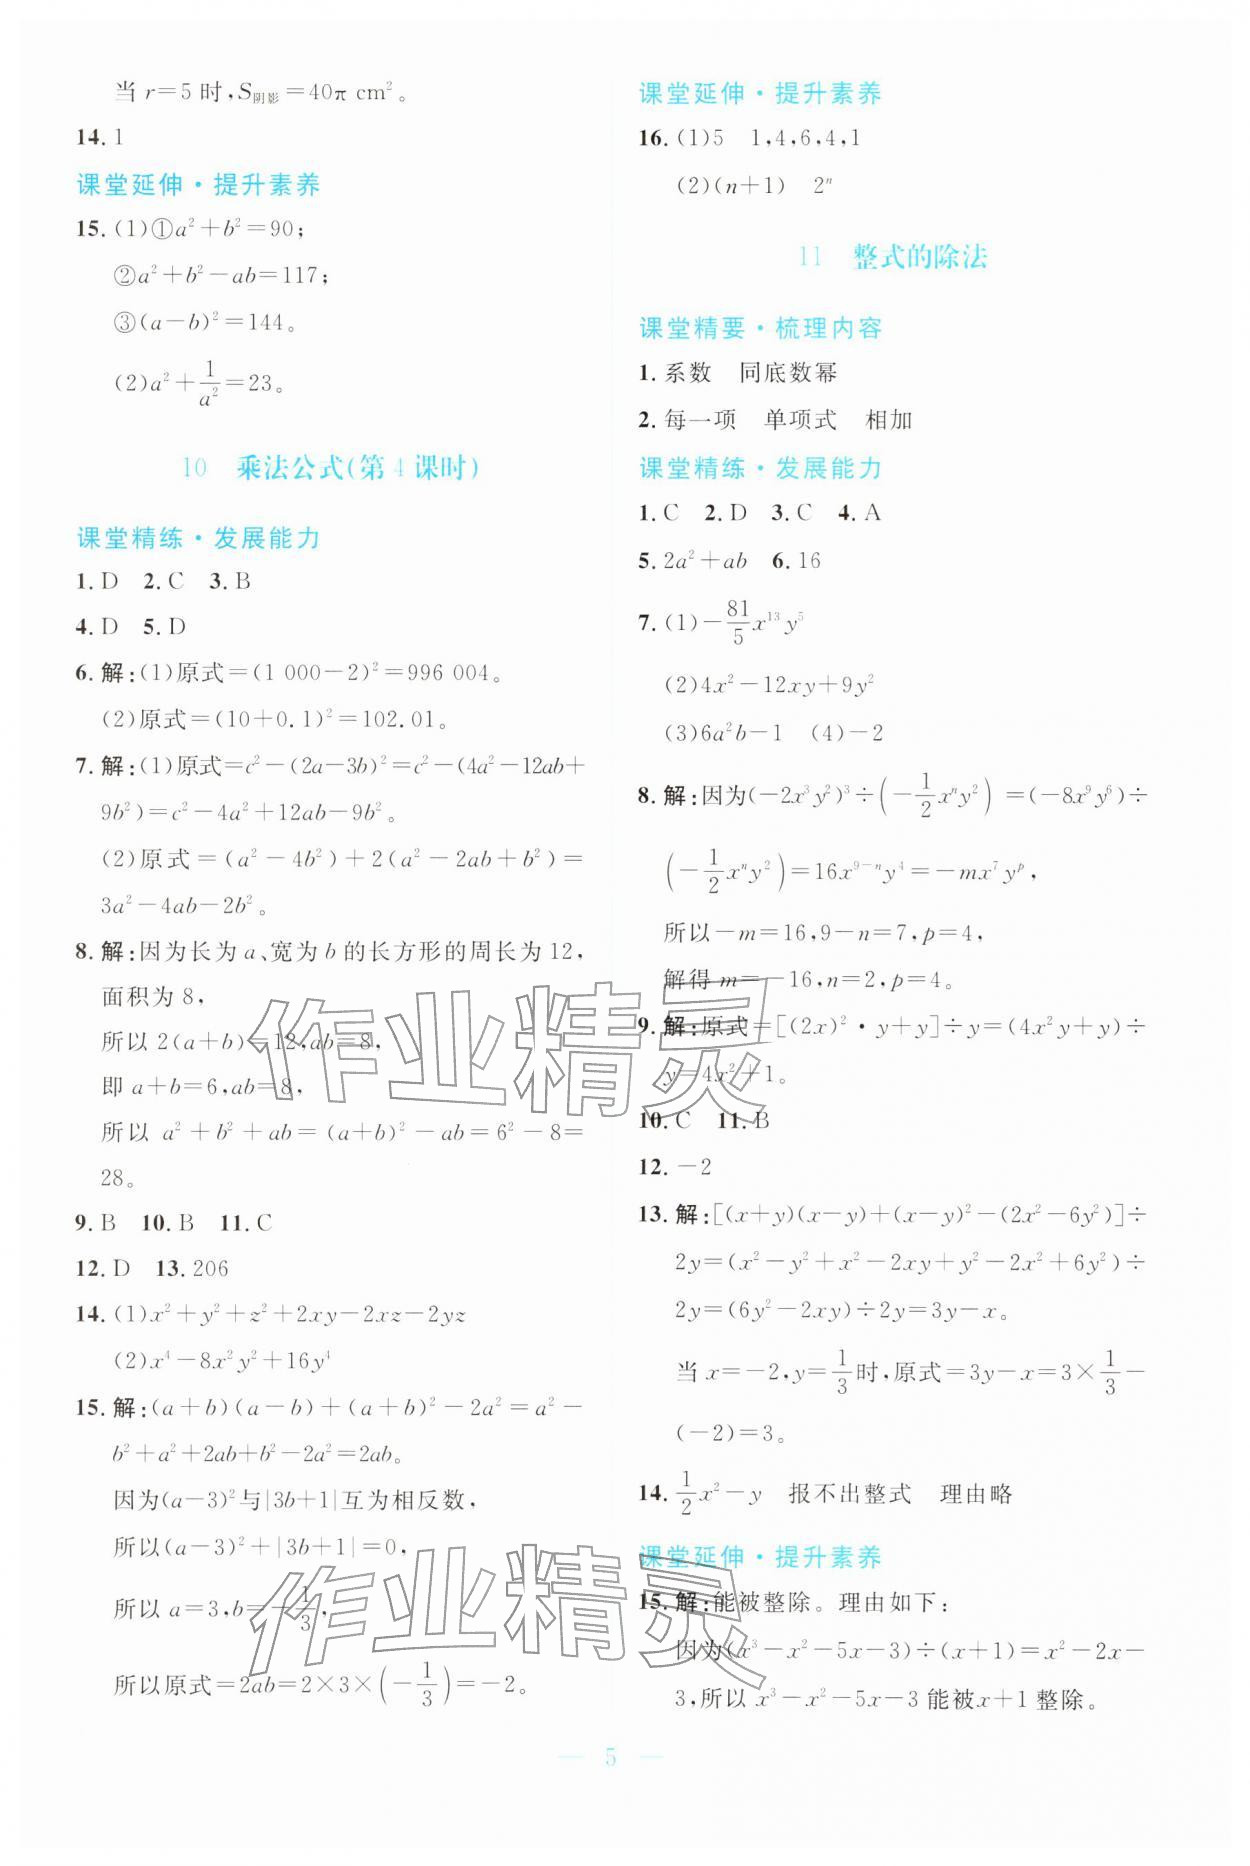 当 r=5 时,S阴影=40π cm²。
14. 1
课堂延伸·提升素养
15. (1)①a²+b²=90;
②a²+b²-ab=117;
③(a-b)²=144。
(2)a²+1/a²=23。
10 乘法公式(第4课时)
课堂精练·发展能力
1. D 2. C 3. B
4. D 5. D
6. 解:(1)原式=(1 000-2)²=996 004。
(2)原式=(10+0.1)²=102.01。
7. 解:(1)原式=c²-(2a-3b)²=c²-(4a²-12ab+
9b²)=c²-4a²+12ab-9b²。
(2)原式=(a²-4b²)+2(a²-2ab+b²)=
3a²-4ab-2b²。
8. 解:因为长为 a、宽为 b 的长方形的周长为 12,
面积为 8,
所以 2(a+b)=12,ab=8,
即 a+b=6,ab=8,
所以 a²+b²+ab=(a+b)²-ab=6²-8=
28。
9. B 10. B 11. C
12. D 13. 206
14. (1)x²+y²+z²+2xy-2xz-2yz
(2)x⁴-8x²y²+16y⁴
15. 解:(a+b)(a-b)+(a+b)²-2a²=a²-
b²+a²+2ab+b²-2a²=2ab。
因为(a-3)²与|3b+1|互为相反数,
所以(a-3)²+|3b+1|=0,
所以 a=3,b=-1/3,
所以原式=2ab=2×3×(-1/3)=-2。
课堂延伸·提升素养
16. (1)5 1,4,6,4,1
(2)(n+1) 2ⁿ
11 整式的除法
课堂精要·梳理内容
1. 系数 同底数幂
2. 每一项 单项式 相加
课堂精练·发展能力
1. C 2. D 3. C 4. A
5. 2a²+ab 6. 16
7. (1)-81/5 x¹³y⁵
(2)4x²-12xy+9y²
(3)6a²b-1 (4)-2
8. 解:因为(-2x³y²)³÷(-1/2 xⁿy²)=(-8x⁹y⁶)÷
(-1/2 xⁿy²)=16x⁹⁻ⁿy⁴=-mx⁷yᵖ,
所以-m=16,9-n=7,p=4,
解得 m=-16,n=2,p=4。
9. 解:原式=[(2x)²·y+y]÷y=(4x²y+y)÷
y=4x²+1。
10. C 11. B
12. -2
13. 解:[(x+y)(x-y)+(x-y)²-(2x²-6y²)]÷
2y=(x²-y²+x²-2xy+y²-2x²+6y²)÷
2y=(6y²-2xy)÷2y=3y-x。
当 x=-2,y=1/3时,原式=3y-x=3×1/3-
(-2)=3。
14. 1/2 x²-y 报不出整式 理由略
课堂延伸·提升素养
15. 解:能被整除。理由如下:
因为(x³-x²-5x-3)÷(x+1)=x²-2x-
3,所以 x³-x²-5x-3 能被x+1 整除。
— 5 —
作业精灵
作业精灵